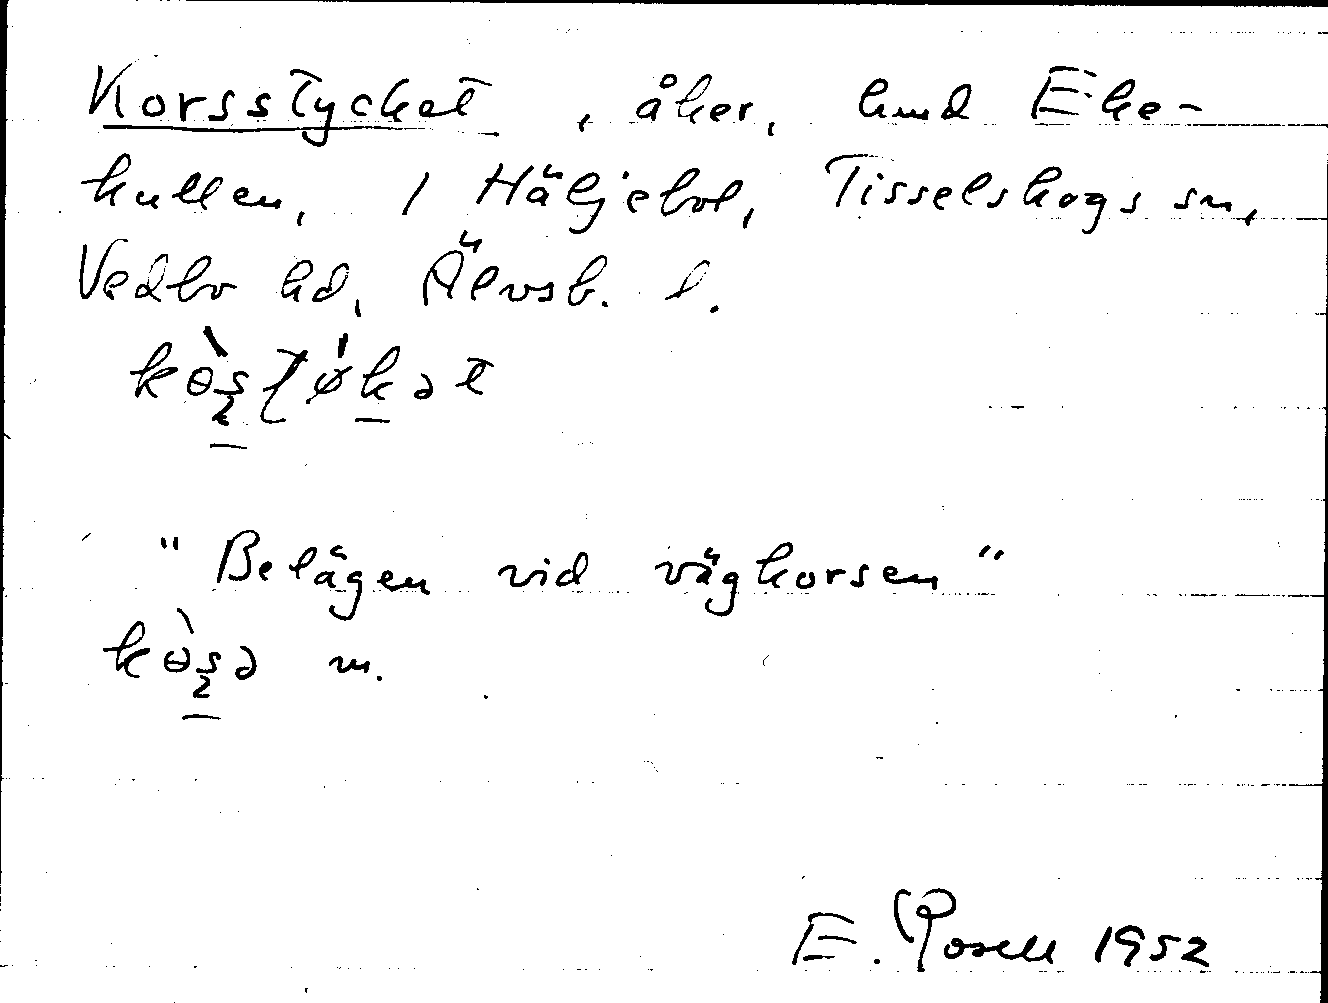 Korsstycket, åker, hmd Eke-
kullen, 1 Häljebol, Tisselskogs sn,
Vedbo hd, Älvsb. l.
"Belägen vid vägkorsen"
m.
E. Rosell 1952